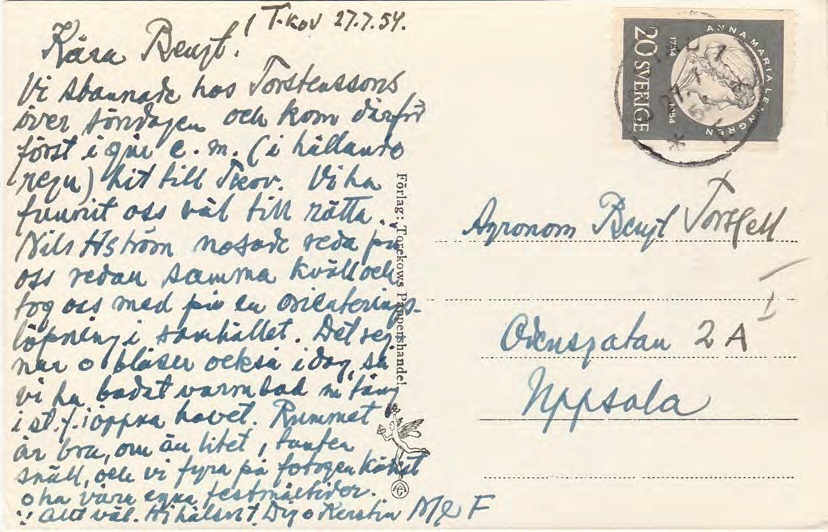 T-kov 27.7.54.
Kära Bengt!
Vi stannade hos Torstenssons
över söndagen och kom därför
först i går e.m. (i hällande
regn) hit till Tkov. Vi ha
funnit oss väl till rätta.
Nils Hström nosade reda på
oss redan samma kväll och
tog oss med på en orienterings-
löpning i samhället. Det reg-
nar o blåser också idag, så
vi ha badat varmbad m tång
i st. f. i öppna havet. Rummet
är bra, om än litet, tanten
snäll, och vi fyra på fotogenköket
o ha våra egna festmåltider.
Allt väl. Vi hälsar! Dig o Kerstin M & F
Förlag: Torekows Pappershandel
ANNA MARIA LENNGREN
1754 1954
20 SVERIGE
Agronom Bengt Torssell
Odensgatan 2 A
I
Uppsala